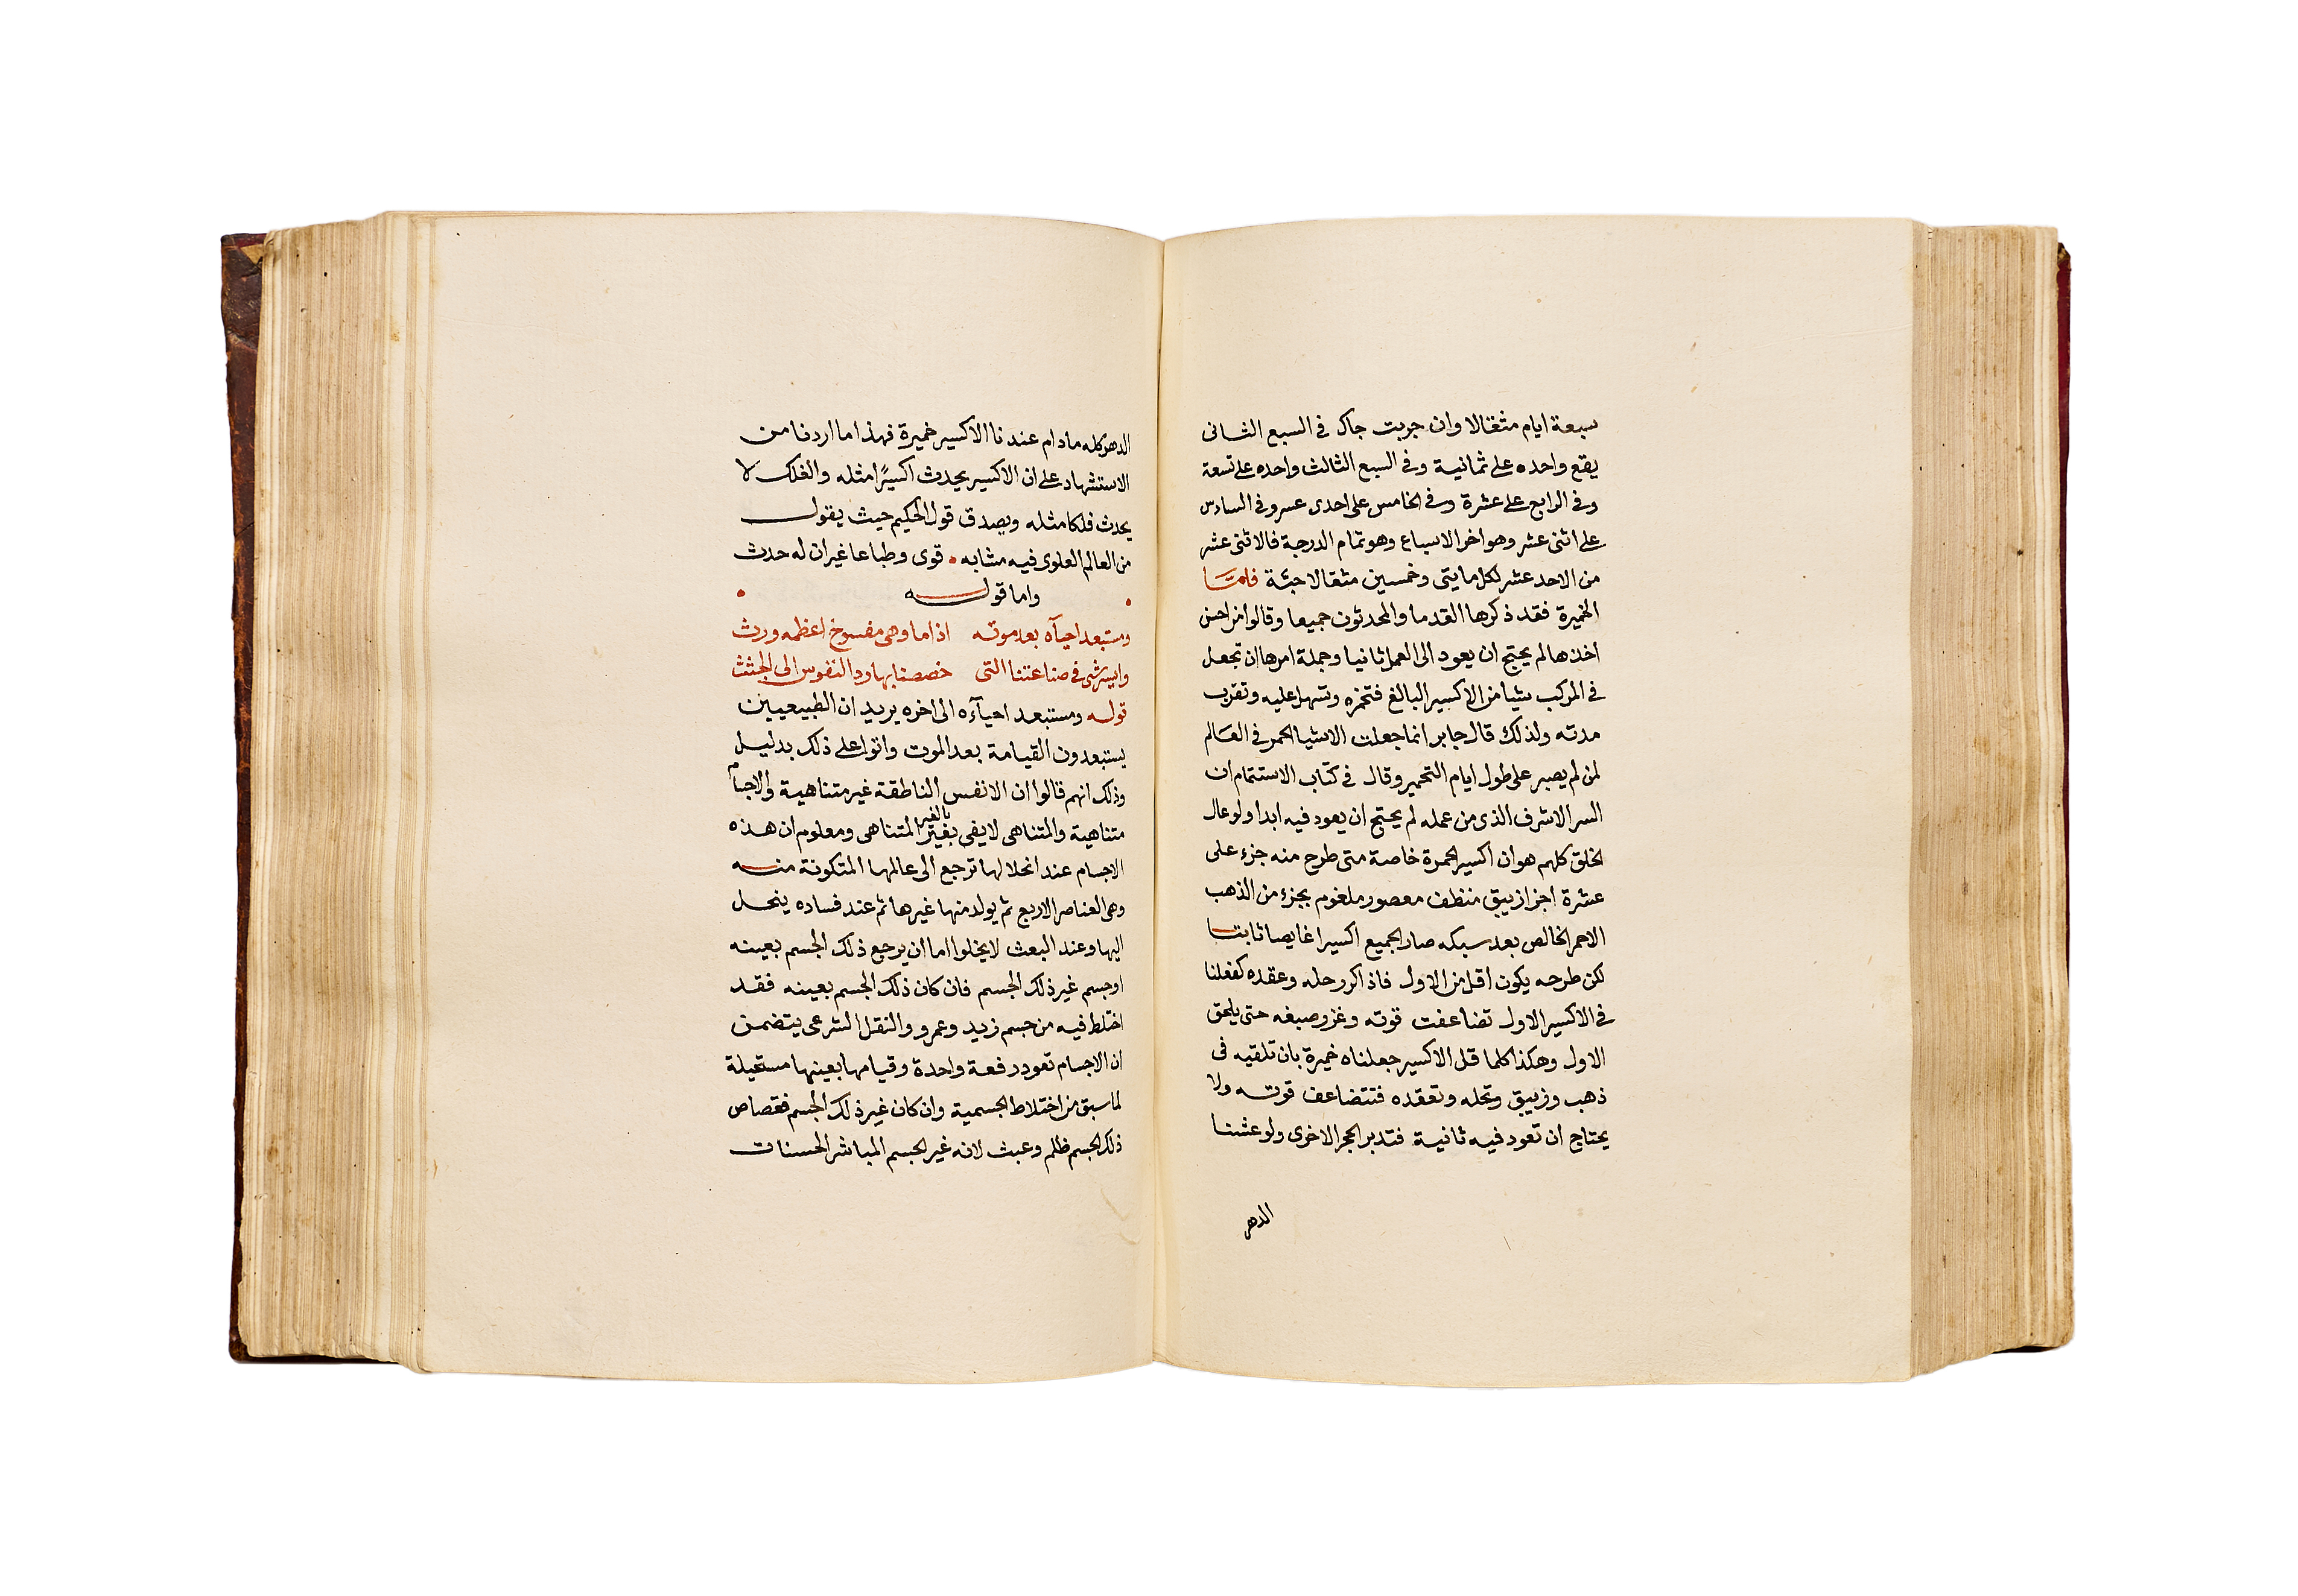 سبعة ايام مثقالا وان جربت جاك فى السبع الثانى
يقع واحده على ثمانية وفى السبع الثالث واحده على تسعة
وفى الرابع على عشرة وفى الخامس على احدى عسر وفى السادس
على اثنى عشر وهو اخر الاسباع وهو تمام الدرجة فالاثنى عشر
من الاحد عشر لكل مايتى وخمسين مثقالا حبّة فلمّا
الخميرة فقد ذكرها القدما والمحدثون جميعا وقالوا من احسن
اخذها لم يحتج ان يعود الى العمل ثانيا وجملة امرها ان تجعل
فى المركب شيا من الاكسير البالغ فتخمره وتسهل عليه وتقرب
مدته ولذلك قال جابر انما جعلت الاشيا الحمر فى العالم
لمن لم يصبر على طول ايام التحمير وقال فى كتاب الاستتمام ان
السر الاشرف الذى من عمله لم يحتج ان يعود فيه ابدا ولو عال
الخلق كلهم هو ان اكسير الحمرة خاصة متى طرح منه جزء على
عشرة اجزا زيبق منظف معصور ملغوم بجزء من الذهب
الاحمر الخالص بعد سبكه صار الجميع اكسيرا غايصا ثابتا
لكن طرحه يكون اقل من الاول فاذا كرر حله وعقده كفعلنا
فى الاكسير الاول تضاعفت قوته وغزر صبغه حتى يلحق
الاول وهكذا كلما قل الاكسير جعلناه خميرة بان تلقيه فى
ذهب وزيبق وتحله وتعقده فتتضاعف قوته ولا
يحتاج ان تعود فيه ثانية فتدبر الحجر الاخرى ولو عشنا
الدهر
الدهر كله مادام عندنا الاكسير خميرة فهذا ما اردنا من
الاستشهاد على ان الاكسير يحدث اكسيرًا مثله والفلك لا
يحدث فلكا مثله ويصدق قول الحكيم حيث يقول
من العالم العلوى فيه مشابه • قوى وطباعا غير ان له حدث
• واما قوله •
ومستبعد احيآه بعد موته اذا ما وهى مفسوخ اعظمه ورث
وايسر شى فى صناعتنا التى خصصنا بها ود النفوس الى الجثث
قوله ومستبعد احيآءه الى اخره يريد ان الطبيعيين
يستبعدون القيامة بعد الموت واتوا على ذلك بدليل
وذلك انهم قالوا ان الانفس الناطقة غير متناهية والاجسام
متناهية والمتناهى لا يفى بغير بالغير المتناهى ومعلوم ان هذه
الاجسام عند انحلالها ترجع الى عالمها المتكونة منه
وهى العناصر الاربع ثم يولد منها غيرها ثم عند فساده ينحل
اليها وعند البعث لا يخلوا اما ان يرجع ذلك الجسم بعينه
او جسم غير ذلك الجسم فان كان ذلك الجسم بعينه فقد
اختلط فيه من جسم زيد وعمرو والنقل الشرعى يتضمن
ان الاجسام تعود دفعة واحدة وقيامها بعينها مستحيلة
لما سبق من اختلاط الجسمية وان كان غير ذلك الجسم فقصاص
ذلك الجسم ظلم وعبث لانه غير الجسم المباشر الحسنات